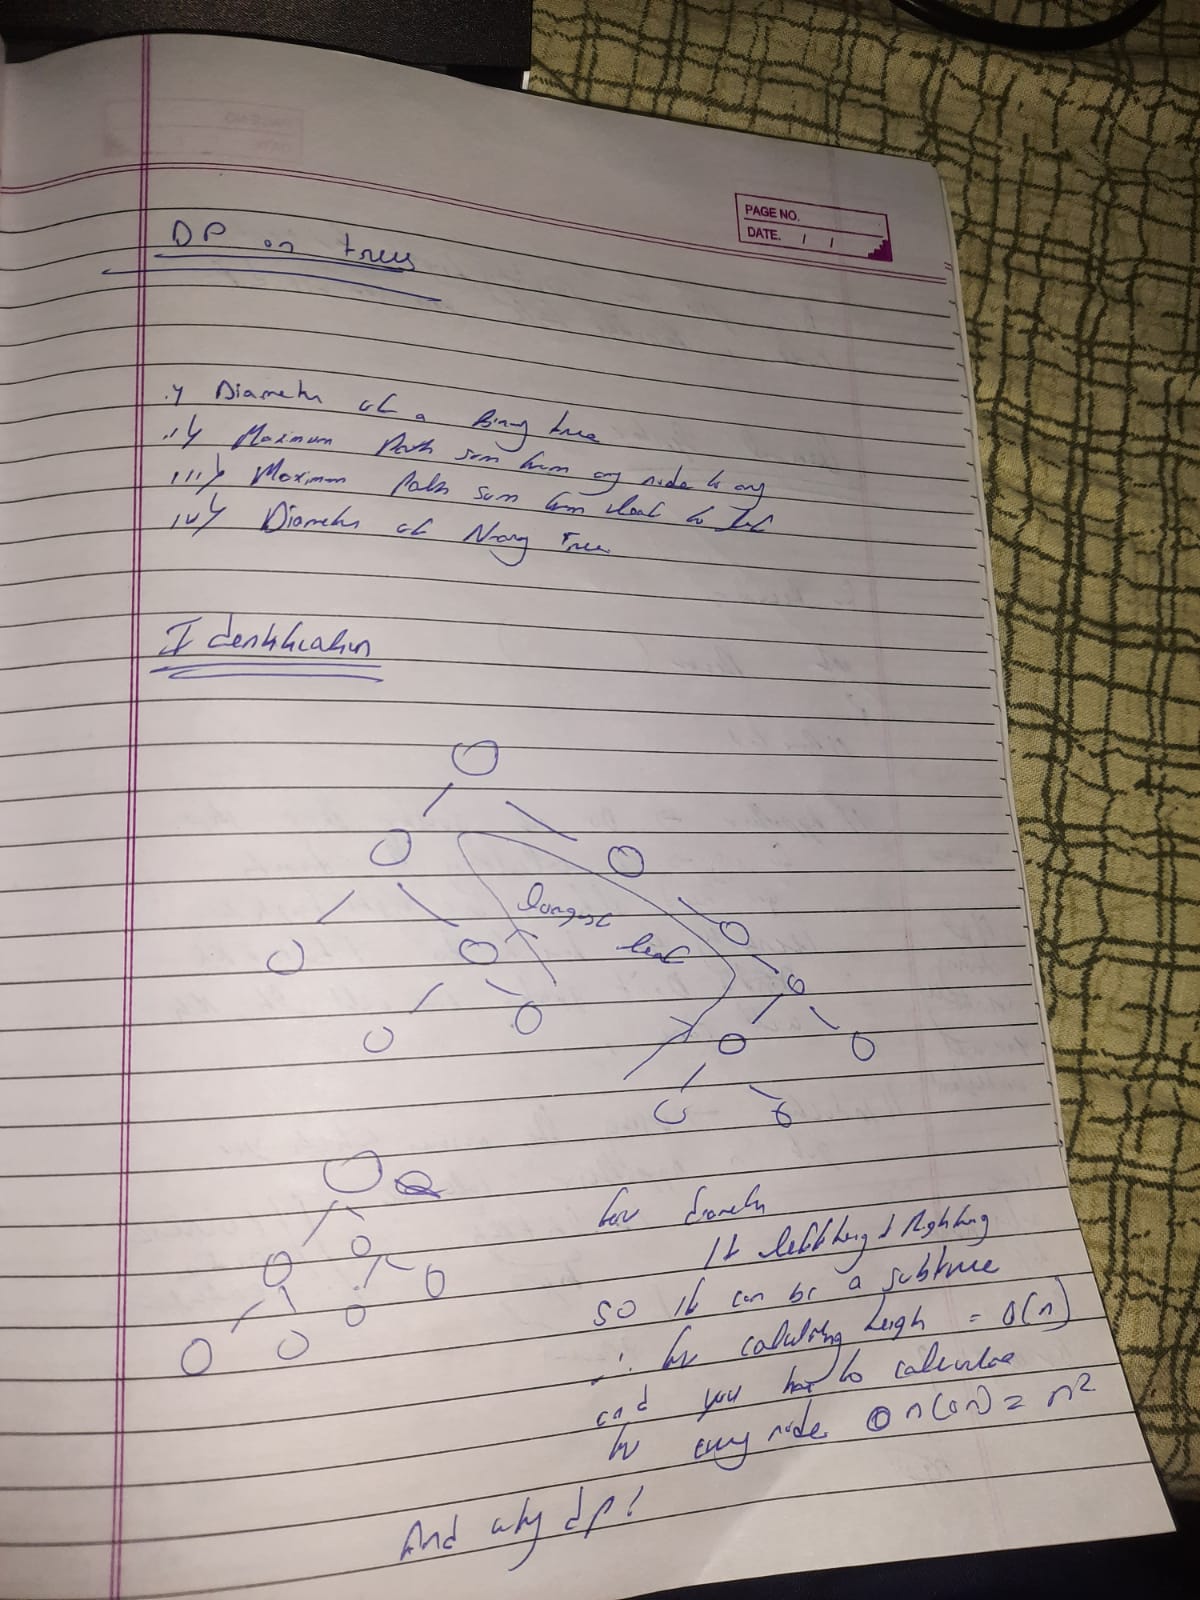 PAGE NO.
DATE. / /
DP on trees
i) Diameter of a Binary tree
ii) Maximum Path sum from any node to any
iii) Maximum Path sum from leaf to leaf
iv) Diameter of N-ary Tree
Identification
longest
leaf
for diameter
It left height + Right height
so it can be a subtree
∴ for calculating heigh = O(n)
and you have to calculate
for every node n(on) = n²
And why dp?